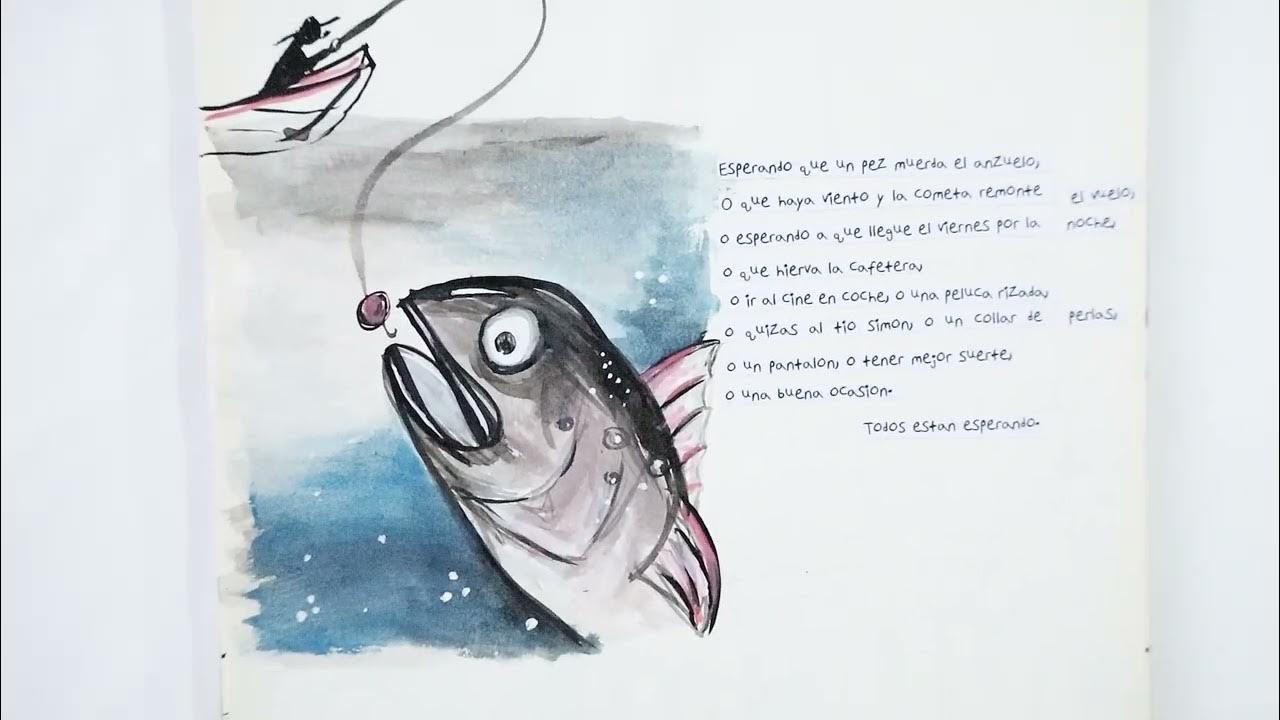 Esperando que un pez muerda el anzuelo,
o que haya viento y la cometa remonte el vuelo,
o esperando a que llegue el viernes por la noche,
o que hierva la cafetera,
o ir al cine en coche, o una peluca rizada,
o quizas al tio simon, o un collar de perlas,
o un pantalon, o tener mejor suerte,
o una buena ocasion.
Todos estan esperando.